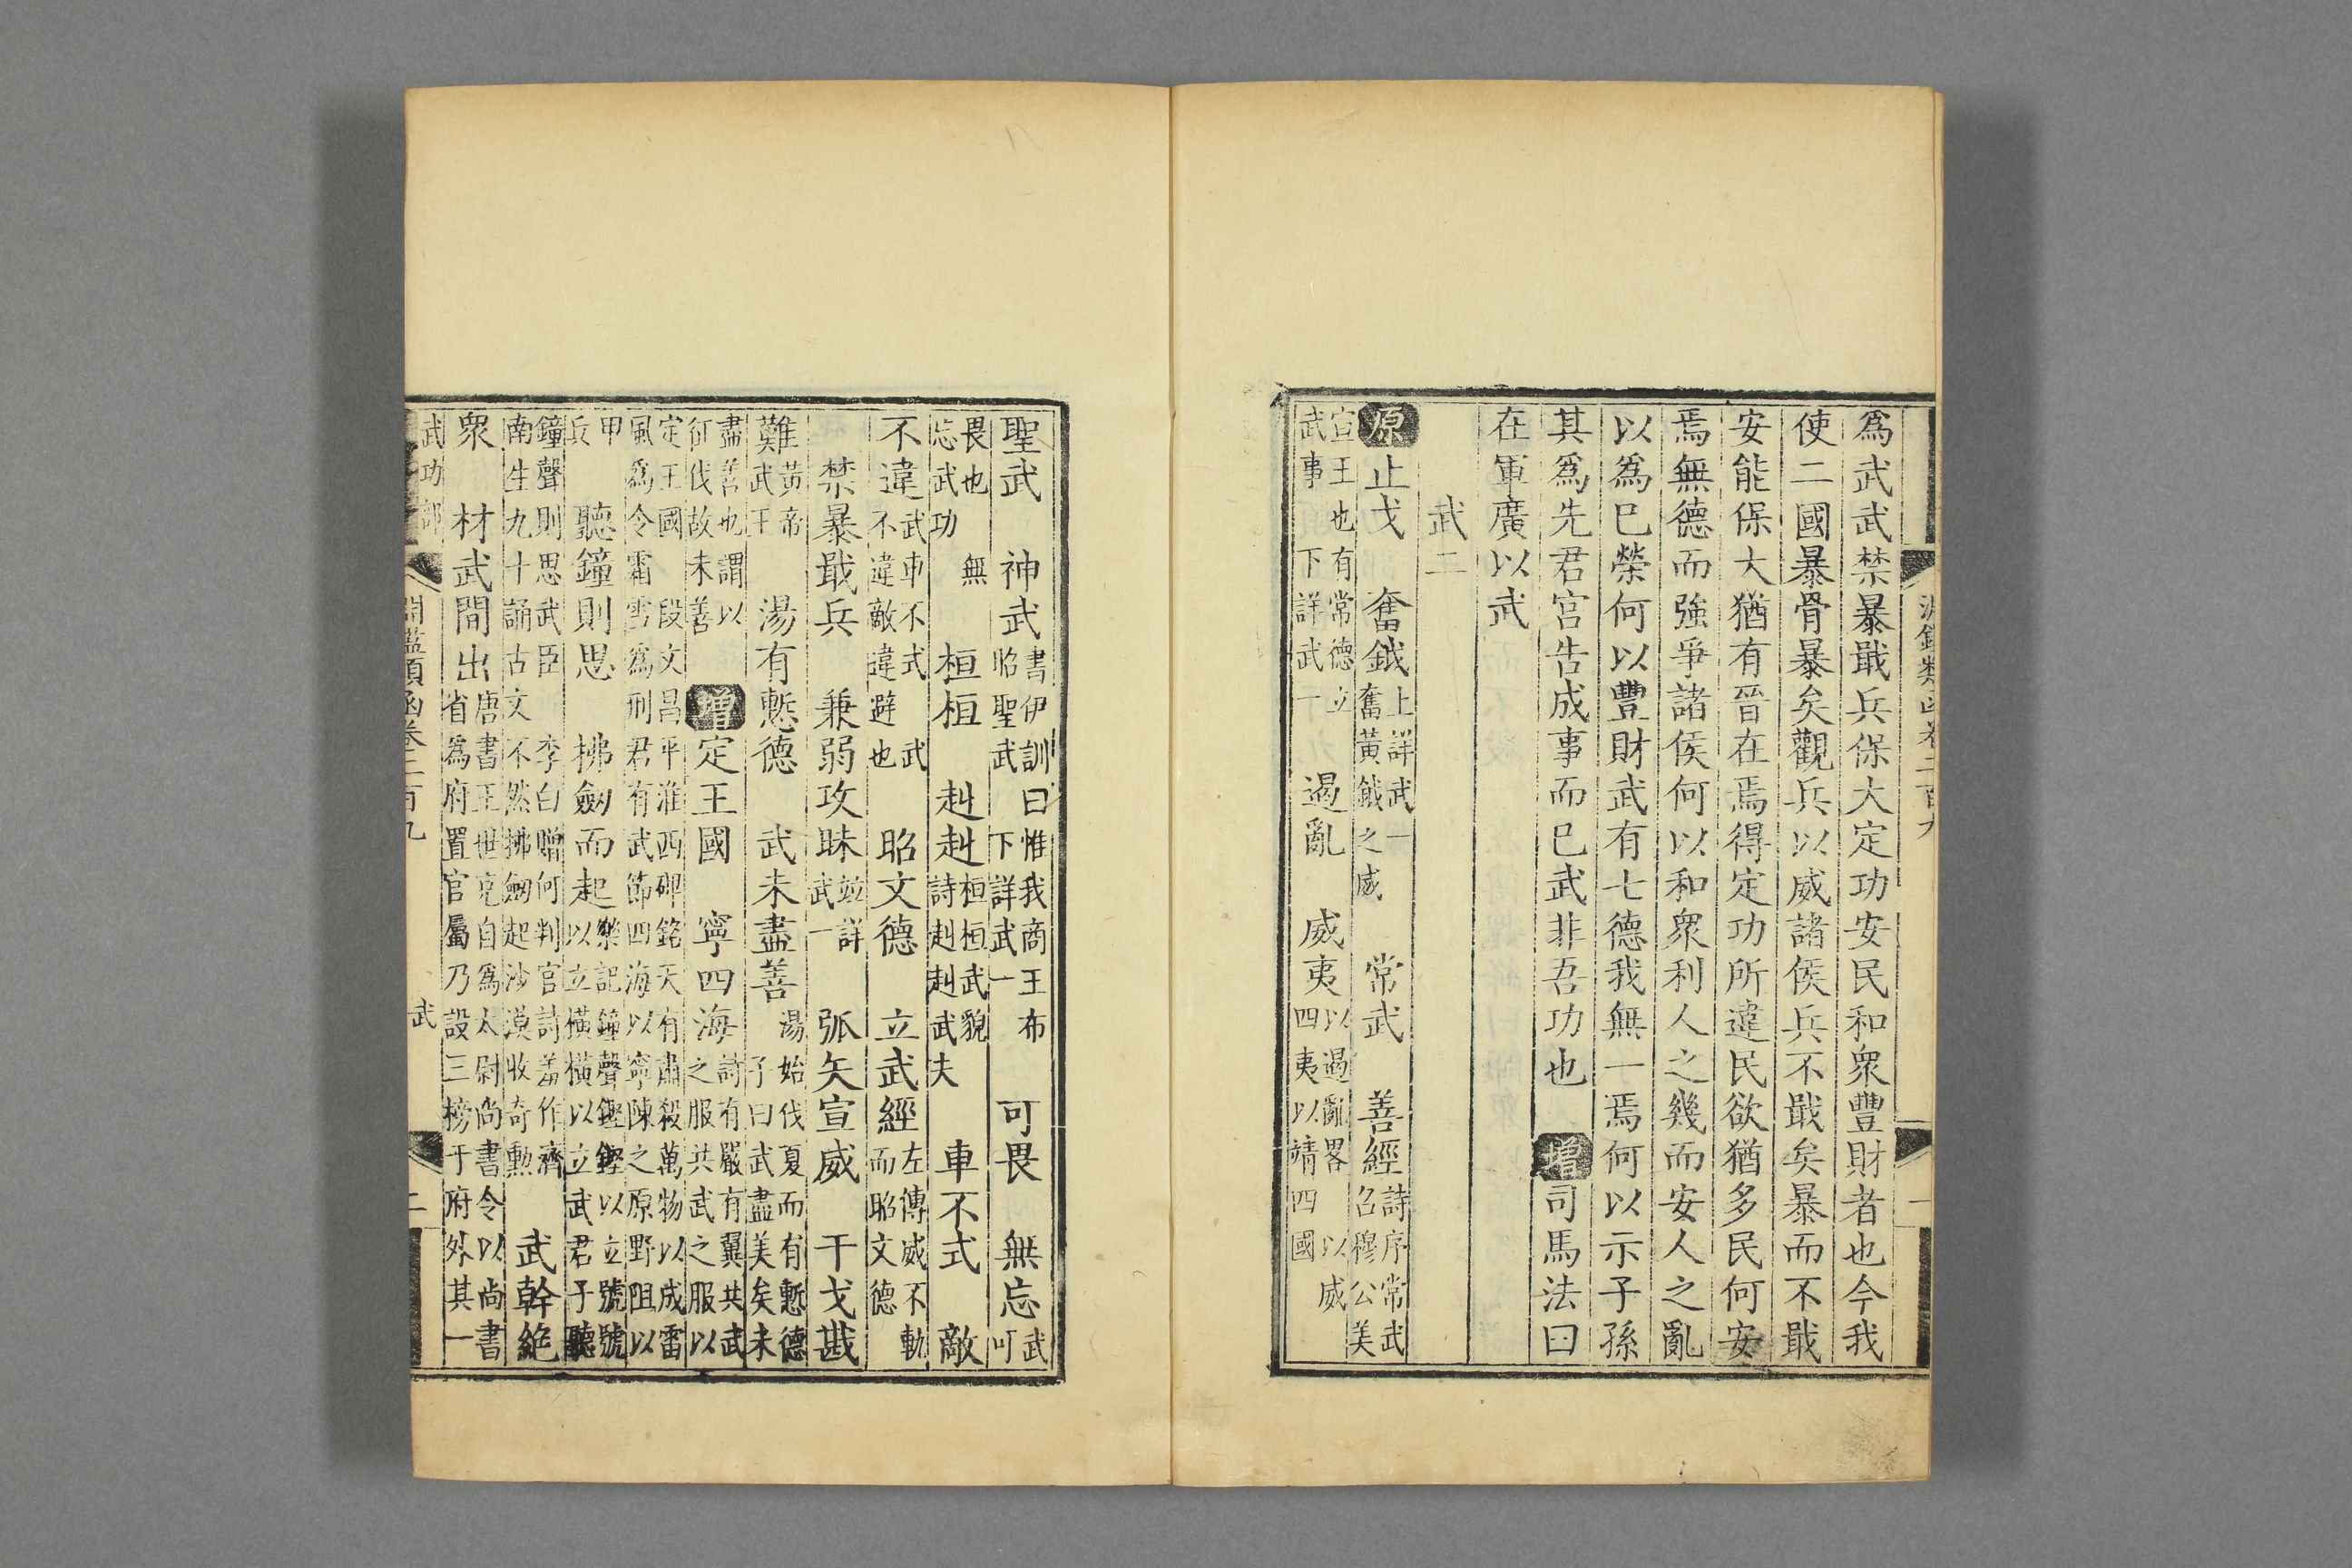 爲武武禁暴戢兵保大定功安民和衆豐財者也今我
使二國暴骨暴矣觀兵以威諸侯兵不戢矣暴而不戢
安能保大猶有晉在焉得定功所違民欲猶多民何安
焉無德而強爭諸侯何以和衆利人之幾而安人之亂
以爲已榮何以豐財武有七德我無一焉何以示子孫
其爲先君宮告成事而已武非吾功也 增司馬法曰
在軍廣以武
武二
原止戈 奮鉞上詳武一奮黃鉞之威 常武 善經詩序常武召穆公美
宣王也有常德立武事下詳武一 遏亂 威夷以遏亂畧以威四夷以靖四國
聖武 神武書伊訓曰惟我商王布昭聖武下詳武一 可畏 無忘武可
畏也無忘武功 桓桓 赳赳桓桓武貌詩赳赳武夫 車不式 敵
不違武車不式武不違敵違避也 昭文德 立武經左傳威不軌而昭文德
禁暴戢兵 兼弱攻昧竝詳武一 弧矢宣威 干戈戡
難黃帝武王 湯有慙德 武未盡善湯始伐夏而有慙德子曰武盡美矣未
盡善也謂以征伐故未善 增定王國 寧四海詩有嚴有翼共武之服共武之服以
定王國段文昌平淮西碑銘天有肅殺萬物以成雷風爲令霜雪爲刑君有武節四海以寧陳之原野阻以
甲兵 聽鐘則思 拂劒而起樂記鐘聲鏗鏗以立號號以立橫橫以立武君子聽
鐘聲則思武臣李白贈何判官詩羞作濟南生九十誦古文不然拂劒起沙漠收奇勲 武幹絶
衆 材武間出唐書王世充自爲太尉尚書令以尚書省爲府置官屬乃設三榜于府外其一
武
二